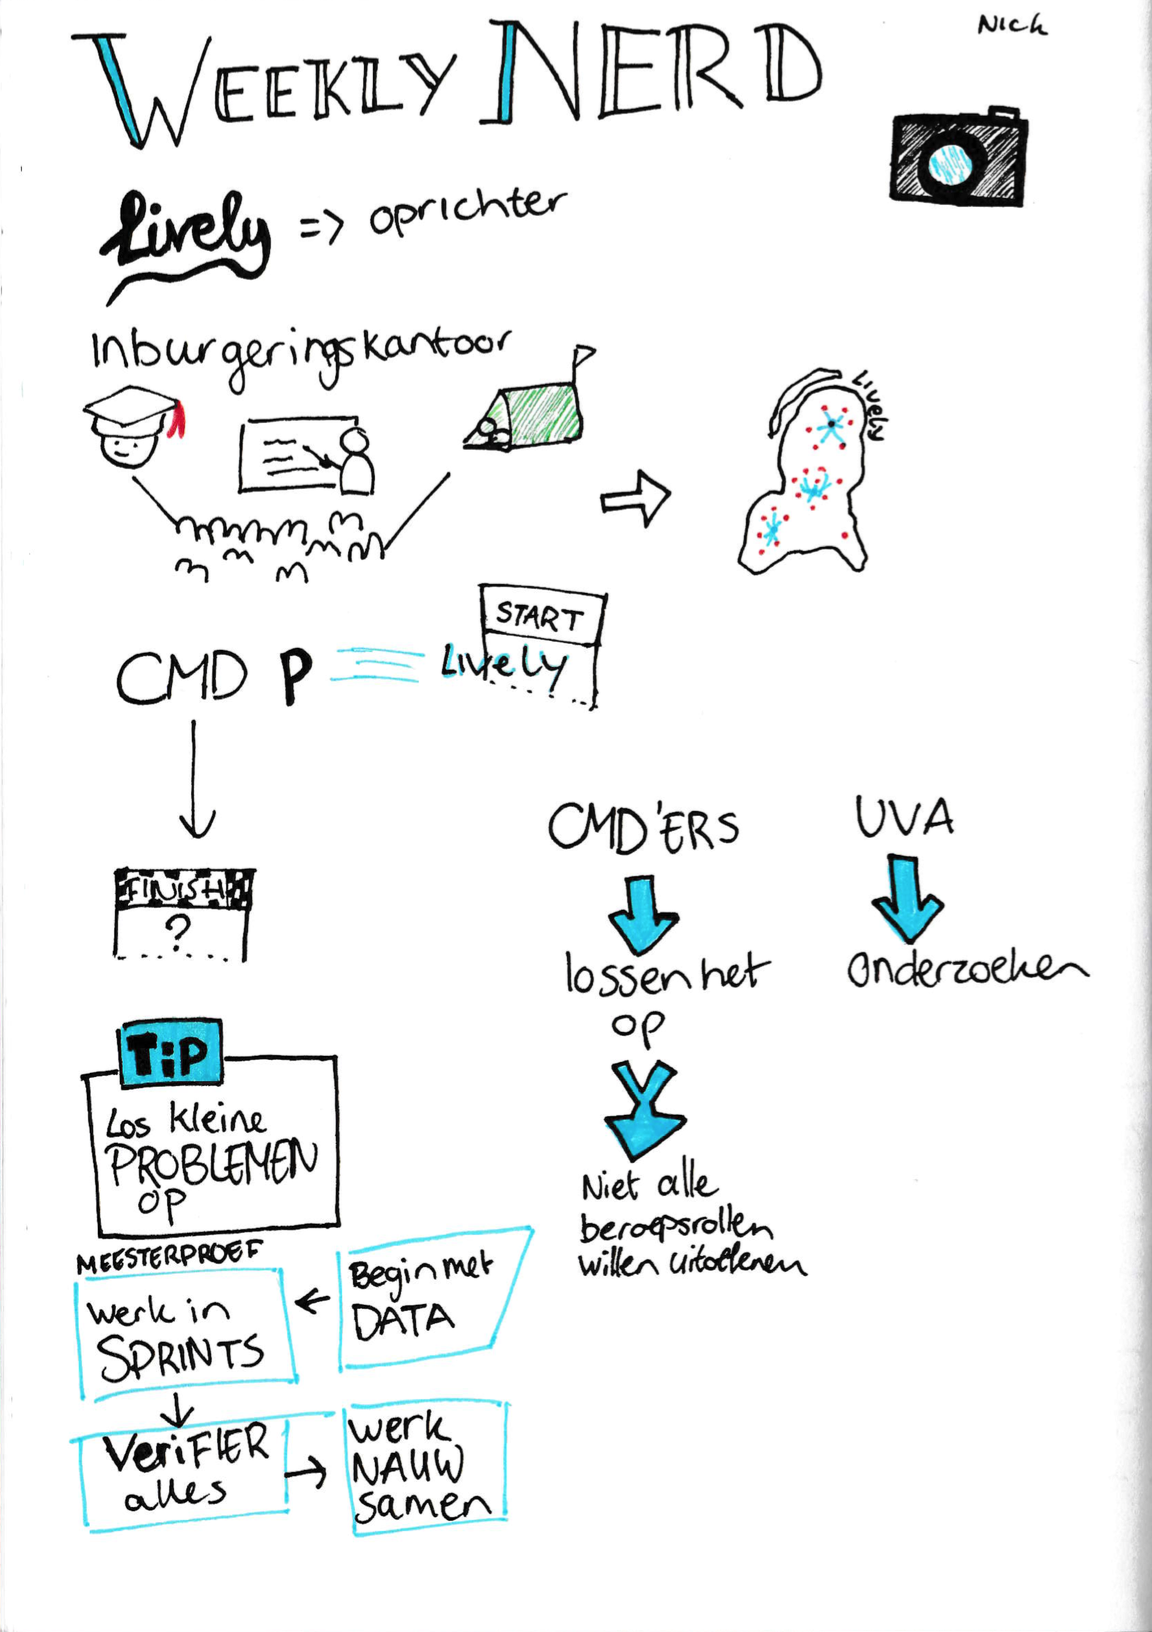 WEEKLY NERD
Nick
Lively => oprichter
Inburgeringskantoor
Lively
START
CMD P Lively
FINISH
?
CMD'ERS
lossen het
op
Niet alle
beroepsrollen
willen uitoefenen
UVA
onderzoeken
TiP
Los kleine
PROBLEMEN
OP
MEESTERPROEF
Begin met
DATA
werk in
SPRINTS
VeriFIER
alles
werk
NAUW
samen